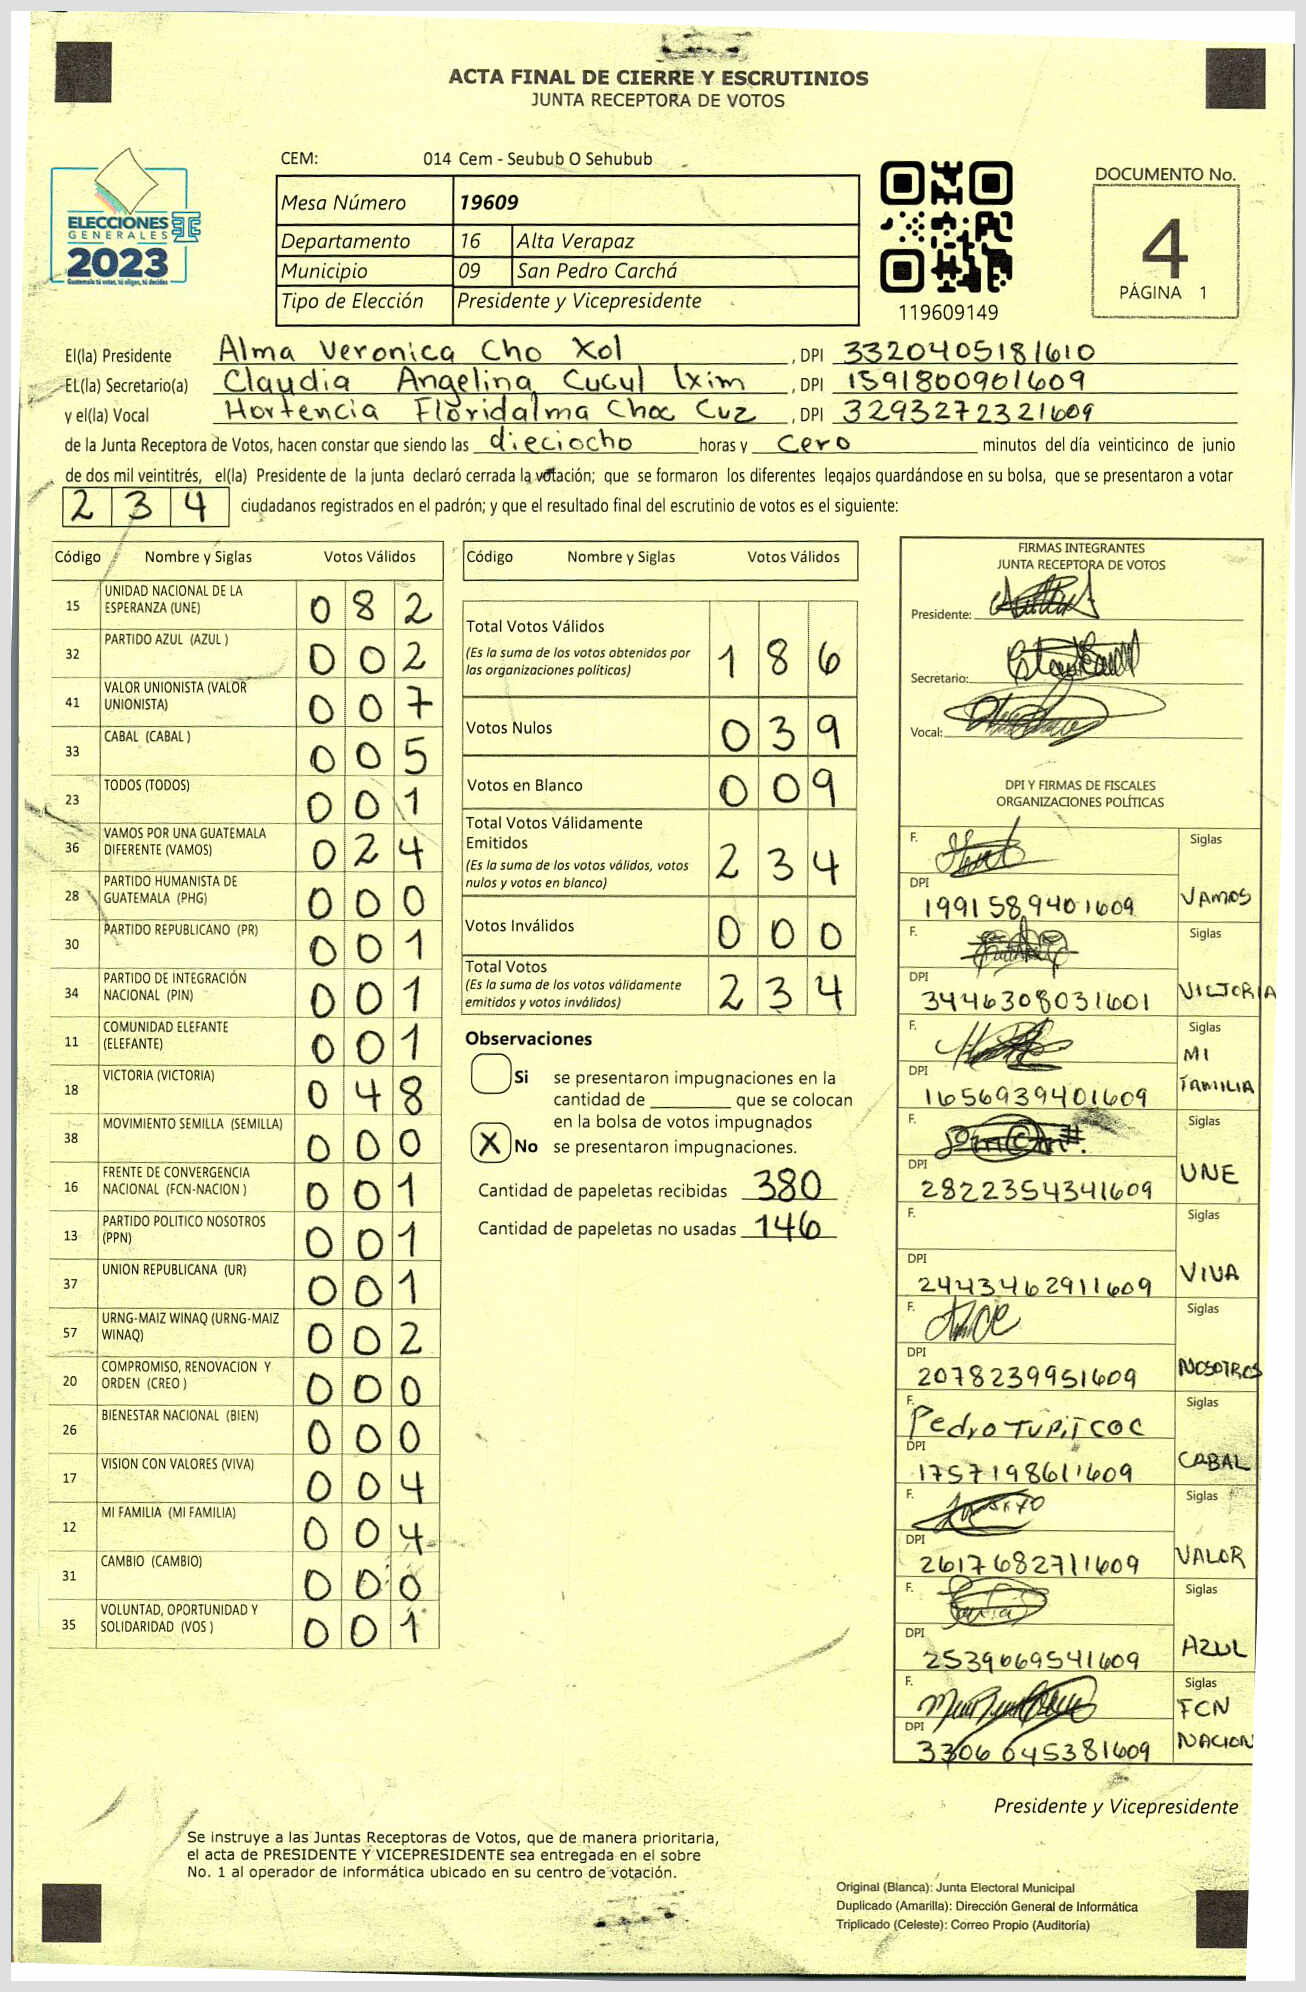 ACTA FINAL DE CIERRE Y ESCRUTINIOS
JUNTA RECEPTORA DE VOTOS
CEM: 014 Cem - Seubub O Sehubub
ELECCIONES
GENERALES
2023
Guatemala tú votas, tú eliges, tú decides
Mesa Número 19609
Departamento 16 Alta Verapaz
Municipio 09 San Pedro Carchá
Tipo de Elección Presidente y Vicepresidente
119609149
DOCUMENTO No.
4
PÁGINA 1
El(la) Presidente Alma Veronica Cho Xol , DPI 3320405181610
EL(la) Secretario(a) Claudia Angelina Cucul Ixim , DPI 1591800901609
y el(la) Vocal Hortencia Floridalma Choc Cuz , DPI 3293272321609
de la Junta Receptora de Votos, hacen constar que siendo las dieciocho horas y cero minutos del día veinticinco de junio
de dos mil veintitrés, el(la) Presidente de la junta declaró cerrada la votación; que se formaron los diferentes legajos quardándose en su bolsa, que se presentaron a votar
234 ciudadanos registrados en el padrón; y que el resultado final del escrutinio de votos es el siguiente:
Código Nombre y Siglas Votos Válidos
15 UNIDAD NACIONAL DE LA ESPERANZA (UNE) 082
32 PARTIDO AZUL (AZUL ) 002
41 VALOR UNIONISTA (VALOR UNIONISTA) 007
33 CABAL (CABAL ) 005
23 TODOS (TODOS) 001
36 VAMOS POR UNA GUATEMALA DIFERENTE (VAMOS) 024
28 PARTIDO HUMANISTA DE GUATEMALA (PHG) 000
30 PARTIDO REPUBLICANO (PR) 001
34 PARTIDO DE INTEGRACIÓN NACIONAL (PIN) 001
11 COMUNIDAD ELEFANTE (ELEFANTE) 001
18 VICTORIA (VICTORIA) 048
38 MOVIMIENTO SEMILLA (SEMILLA) 000
16 FRENTE DE CONVERGENCIA NACIONAL (FCN-NACION ) 001
13 PARTIDO POLITICO NOSOTROS (PPN) 001
37 UNION REPUBLICANA (UR) 001
57 URNG-MAIZ WINAQ (URNG-MAIZ WINAQ) 002
20 COMPROMISO, RENOVACION Y ORDEN (CREO ) 000
26 BIENESTAR NACIONAL (BIEN) 000
17 VISION CON VALORES (VIVA) 004
12 MI FAMILIA (MI FAMILIA) 004
31 CAMBIO (CAMBIO) 000
35 VOLUNTAD, OPORTUNIDAD Y SOLIDARIDAD (VOS ) 001
Código Nombre y Siglas Votos Válidos
Total Votos Válidos 186
(Es la suma de los votos obtenidos por
las organizaciones politicas)
Votos Nulos 039
Votos en Blanco 009
Total Votos Válidamente
Emitidos 234
(Es la suma de los votos válidos, votos
nulos y votos en blanco)
Votos Inválidos 000
Total Votos 234
(Es la suma de los votos válidamente
emitidos y votos inválidos)
Observaciones
Si se presentaron impugnaciones en la
cantidad de ________ que se colocan
en la bolsa de votos impugnados
X No se presentaron impugnaciones.
Cantidad de papeletas recibidas 380
Cantidad de papeletas no usadas 146
FIRMAS INTEGRANTES
JUNTA RECEPTORA DE VOTOS
Presidente:
Secretario:
Vocal:
DPI Y FIRMAS DE FISCALES
ORGANIZACIONES POLÍTICAS
F. Siglas
DPI 1991589401609 VAMOS
F. Siglas
DPI 3446308031601 VICTORIA
F. Siglas
MI
DPI 1656939401609 FAMILIA
F. Siglas
DPI 2822354341609 UNE
F. Siglas
DPI 2443462911609 VIVA
F. Siglas
DPI 2078239951609 NOSOTROS
F. Pedro TUPiT COC Siglas
DPI 1757198611609 CABAL
F. Siglas
DPI 2617682711609 VALOR
F. Siglas
DPI 2539669541609 AZUL
F. Siglas
FCN
DPI 3306645381609 NACION
Presidente y Vicepresidente
Se instruye a las Juntas Receptoras de Votos, que de manera prioritaria,
el acta de PRESIDENTE Y VICEPRESIDENTE sea entregada en el sobre
No. 1 al operador de informática ubicado en su centro de votación.
Original (Blanca): Junta Electoral Municipal
Duplicado (Amarilla): Dirección General de Informática
Triplicado (Celeste): Correo Propio (Auditoría)